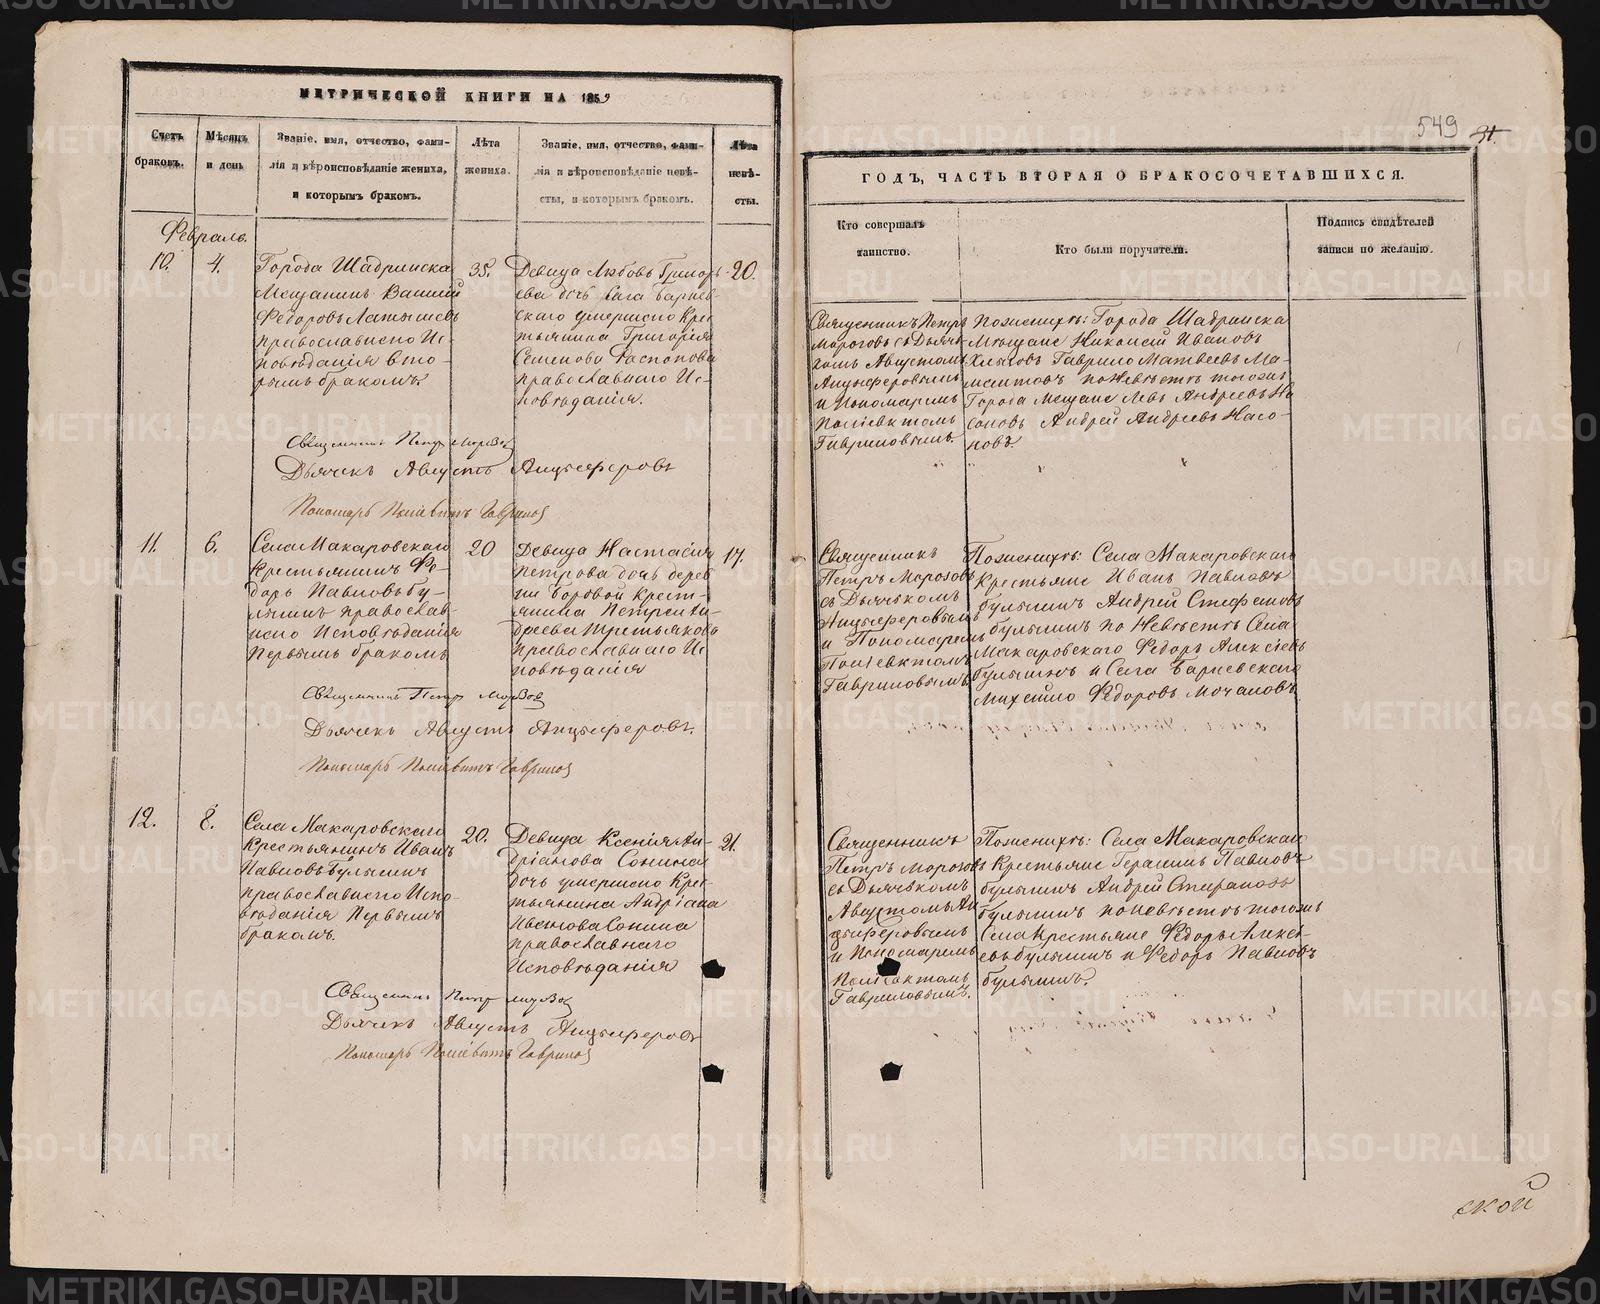 МЕТРИЧЕСКОЙ КНИГИ НА 1859
Счетъ браковъ.
Мѣсяцъ и день
Званіе, имя, отчество, фами-
лія и вѣроисповѣданіе жениха,
и которымъ бракомъ.
Лѣта
жениха.
Званіе, имя, отчество, фами-
лія и вѣроисповѣданіе невѣ-
сты, и которымъ бракомъ.
Лѣта
невѣ-
сты.
Февраль.
10.
4.
Города Шадринска
Мещанинъ Василій
Федоровъ Латышевъ
православнаго Ис-
повѣданія вто-
рымъ бракомъ
35.
Девица Любовь Григорь
ева дочь села Барнев-
скаго умершаго Крес
тьянина Григорія
Семенова Распопова
православнаго Ис-
повѣданія.
20.
Священникъ Петръ Морозов
Дьячекъ Августъ Анцыферовъ
Пономарь Поліевктъ Гаврилов
11.
6.
Села Макаровскаго
Крестьянинъ Фе-
доръ Павловъ Бу-
лыгинъ православ-
наго Исповѣданія
Первымъ бракомъ
20
Девица Настасія
Петрова дочь дерев
ни Боровой крест-
янина Петра Ан-
дреева Третьякова
православнаго Ис
повѣданія
17.
Священникъ Петр Морозов
Дьячекъ Августъ Анцыферовъ.
Пономарь Поліевктъ Гаврилов
12.
8.
Села Макаровскаго
Крестьянинъ Иванъ
Павловъ Булыгинъ
православнаго Испо-
вѣданія Первымъ
бракомъ.
20.
Девица Ксенія Ан-
дріанова Сонина
дочь умершаго Крес-
тьянина Андріана
Иванова Сонина
православнаго
Исповѣданія
21.
Священникъ Петр Морозов
Дьячекъ Августъ Анцыферовъ
Пономарь Поліевктъ Гаврилов
549
ГОДЪ, ЧАСТЬ ВТОРАЯ О БРАКОСОЧЕТАВШИХСЯ.
Кто совершалъ
таинство.
Кто были поручители.
Подпись свидѣтелей
записи по желанію.
Священникъ Петръ
Морозовъ съ Дьяч-
комъ Августомъ
Анцыферовымъ
и Пономаремъ
Поліевктомъ
Гавриловымъ.
По женихѣ: Города Шадринска
Мещане Николай Ивановъ
Хлызовъ Гаврило Матвеевъ Ма-
по невѣстѣ тогожъ
Города Мещане Левъ Андреевъ На
соновъ Андрей Андреевъ Насо-
новъ.
Священникъ
Петръ Морозовъ
съ Дьячкомъ
Анцыферовымъ
и Пономаремъ
Поліевктомъ
Гавриловымъ.
По женихѣ: Села Макаровскаго
Крестьяне Иванъ Павловъ
булыгинъ Андрей Стефановъ
булыгинъ по невѣстѣ Села
Макаровскаго Федоръ Алексѣевъ
булыгинъ и Села Барневскаго
Михайло Федоровъ Мочаловъ.
Священникъ
Петръ Морозовъ
съ Дьячкомъ
Августомъ Ан
цыферовымъ
и Пономаремъ
Поліевктомъ
Гавриловымъ.
По женихѣ: Села Макаровскаго
Крестьяне Герасимъ Павловъ
булыгинъ Андрей Стефановъ
Булыгинъ по невѣстѣ тогожъ
Села Крестьяне Федоръ Алексе-
евъ булыгинъ и Федоръ Павловъ
булыгинъ.
ской
METRIKI.GASO-URAL.RU